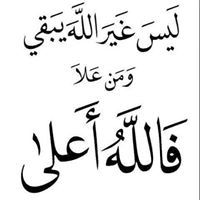 لَيْسَ غَيْرَ اللَّهِ يَبْقَي
وَمَن عَلَا
فَاللَّهُ أَعلىٰ